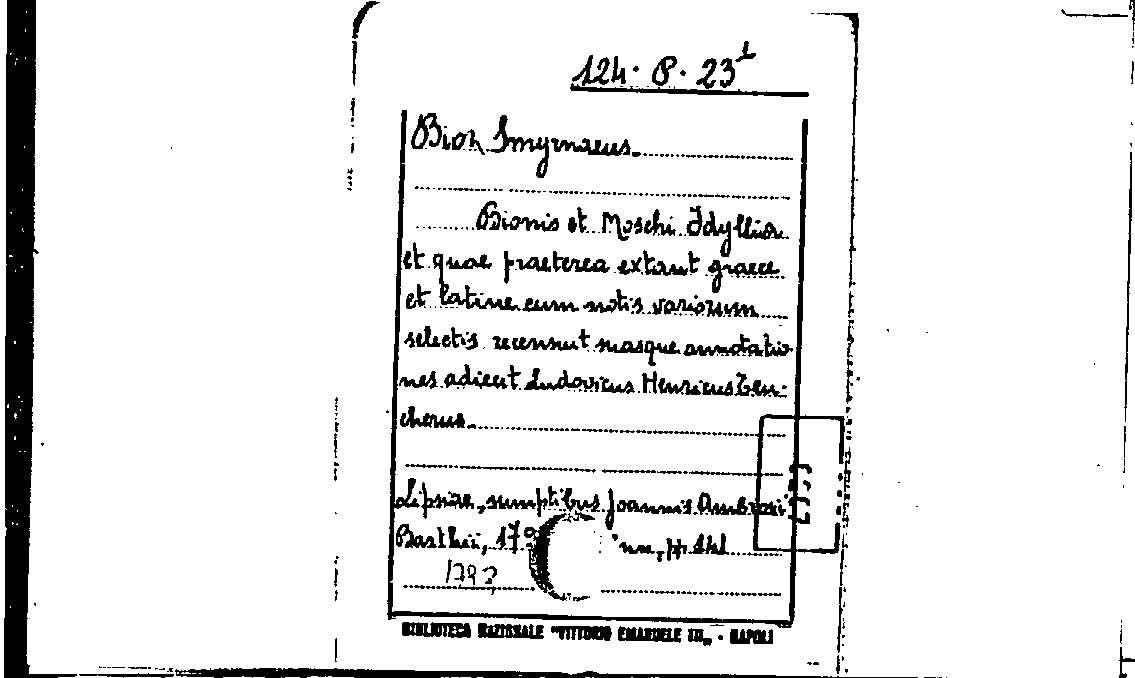 124. 8. 23¹
Bion Smyrnaeus.
Bionis et Moschi Idyllia
et quae praeterea extant graece
et latine cum notis variorum
selectis recensuit suasque annotatio
nes adiecit Ludovicus Henricus Teu-
cherus.
Lipsiae, sumptibus Joannis Ambrosii
Barthii, 179 pp. 141
1793
BIBLIOTECA NAZIONALE "VITTORIO EMANUELE III" - NAPOLI